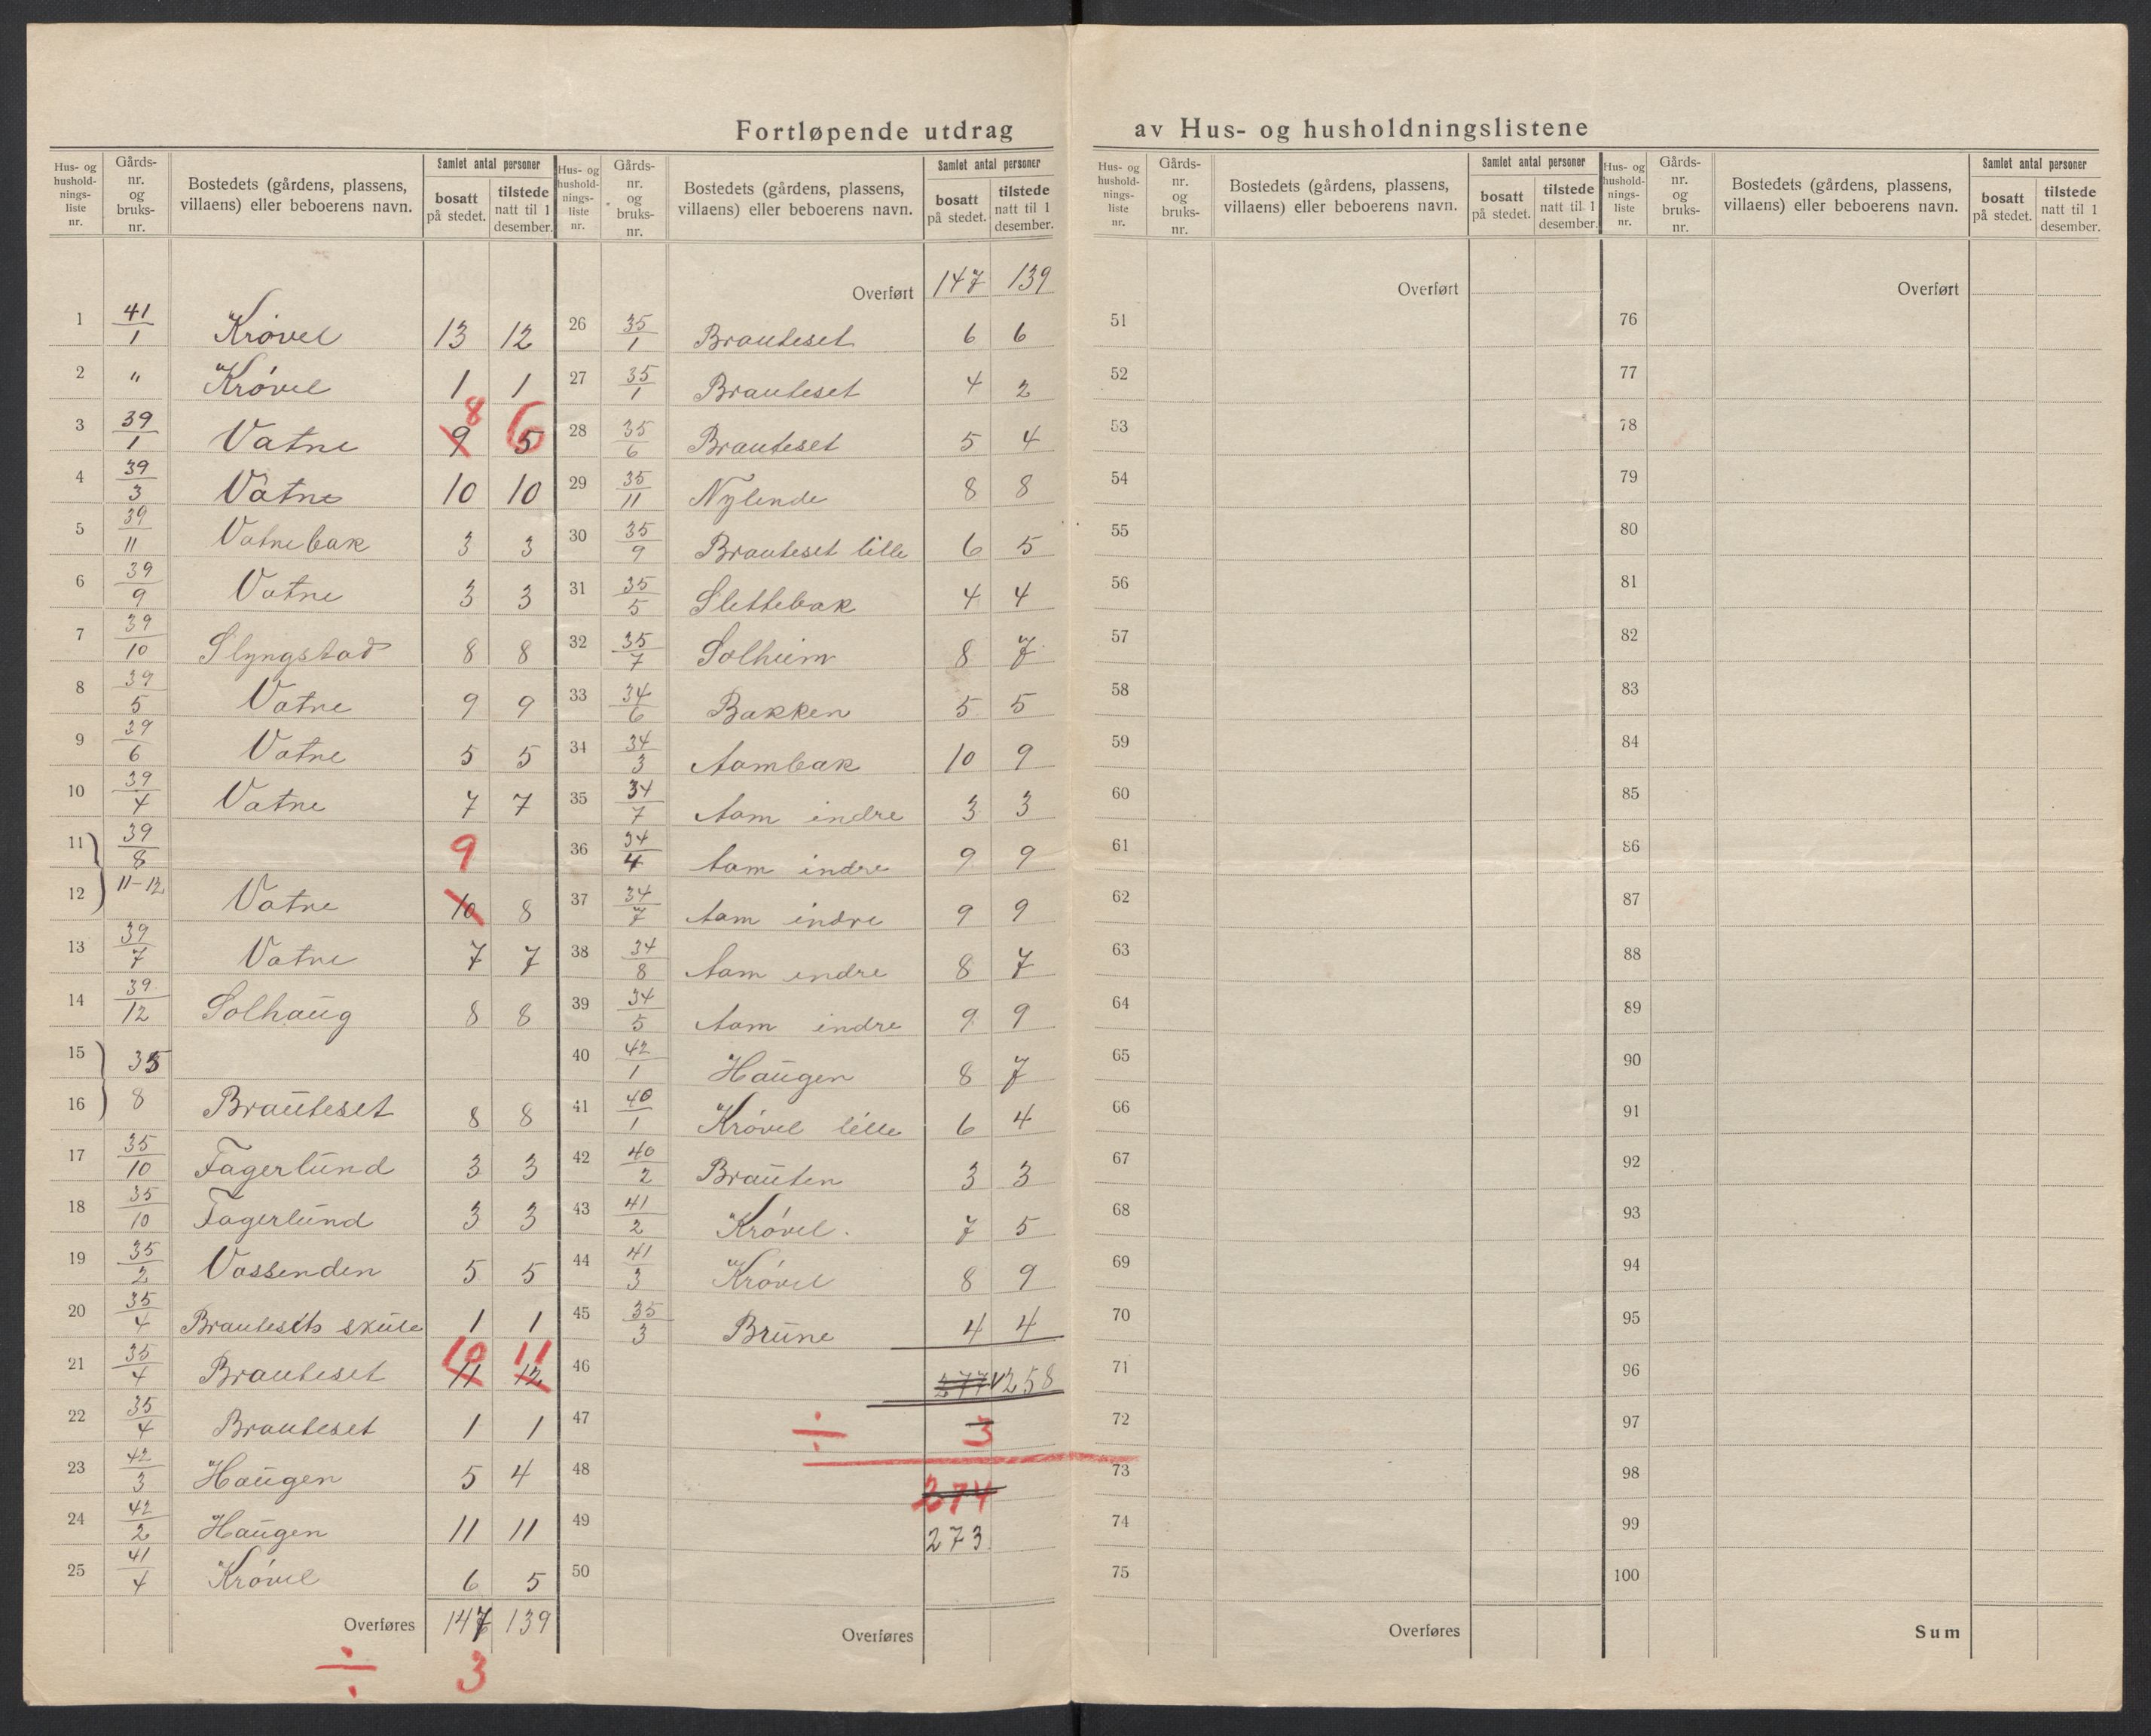 Fortløpende utdrag av Hus- og husholdningslistene
Hus- og husholdnings-liste nr. | Gårds-nr. og bruks-nr. | Bostedets (gårdens, plassens, villaens) eller beboerens navn. | Samlet antal personer | bosatt på stedet. | tilstede natt til 1 desember.
1 41/1 Krøvel 13 12
2 " Krøvel 1 1
3 39/1 Vatne 9 8 5 6
4 39/3 Vatne 10 10
5 39/11 Vatnebak 3 3
6 39/9 Vatne 3 3
7 39/10 Slyngstad 8 8
8 39/5 Vatne 9 9
9 39/6 Vatne 5 5
10 39/4 Vatne 7 7
11 39/8 9
12 11-12 Vatne 10 8
13 39/7 Vatne 7 7
14 39/12 Solhaug 8 8
15 35
16 8 Brauteset 8 8
17 35/10 Fagerlund 3 3
18 35/10 Fagerlund 3 3
19 35/2 Vassenden 5 5
20 35/4 Brautesets skule 1 1
21 35/4 Brauteset 10 11 11 12
22 35/4 Brauteset 1 1
23 42/3 Haugen 5 4
24 42/2 Haugen 11 11
25 41/4 Krøvel 6 5
Overføres 147 139
÷ 3
Hus- og husholdnings-liste nr. | Gårds-nr. og bruks-nr. | Bostedets (gårdens, plassens, villaens) eller beboerens navn. | Samlet antal personer | bosatt på stedet. | tilstede natt til 1 desember.
Overført 147 139
26 35/1 Brauteset 6 6
27 35/1 Brauteset 4 2
28 35/6 Brauteset 5 4
29 35/11 Nylende 8 8
30 35/9 Brauteset lille 6 5
31 35/5 Slettebak 4 4
32 35/7 Solheim 8 7
33 34/6 Bakken 5 5
34 34/3 Aambak 10 9
35 34/7 Aam indre 3 3
36 34/4 Aam indre 9 9
37 34/7 Aam indre 9 9
38 34/8 Aam indre 8 7
39 34/5 Aam indre 9 9
40 42/1 Haugen 8 7
41 40/1 Krøvel lille 6 4
42 40/2 Brauten 3 3
43 41/2 Krøvel. 7 5
44 41/3 Krøvel 8 9
45 35/3 Brune 4 4
46 277 v 258
47 ÷ 3
48 274
49 273
50
Overføres
Hus- og husholdnings-liste nr. | Gårds-nr. og bruks-nr. | Bostedets (gårdens, plassens, villaens) eller beboerens navn. | Samlet antal personer | bosatt på stedet. | tilstede natt til 1 desember.
Overført
51
52
53
54
55
56
57
58
59
60
61
62
63
64
65
66
67
68
69
70
71
72
73
74
75
Overføres
Hus- og husholdnings-liste nr. | Gårds-nr. og bruks-nr. | Bostedets (gårdens, plassens, villaens) eller beboerens navn. | Samlet antal personer | bosatt på stedet. | tilstede natt til 1 desember.
Overført
76
77
78
79
80
81
82
83
84
85
86
87
88
89
90
91
92
93
94
95
96
97
98
99
100
Sum